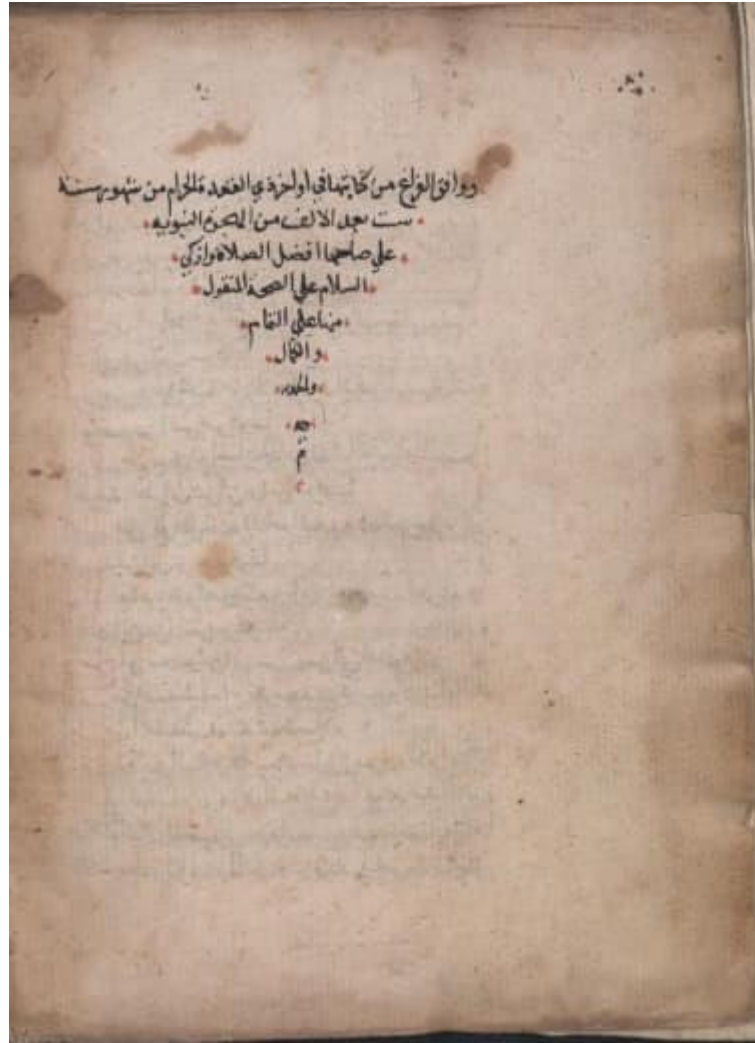 ووافق الفراغ من كتابتها في اواخر ذي القعدة الحرام من شهور سنة
ست بعد الالف من الهجرة النبوية
علي صاحبها افضل الصلاة وازكي
السلام علي الصحة المنقول
منها علي التمام
والكمال
والحمد
لله
م